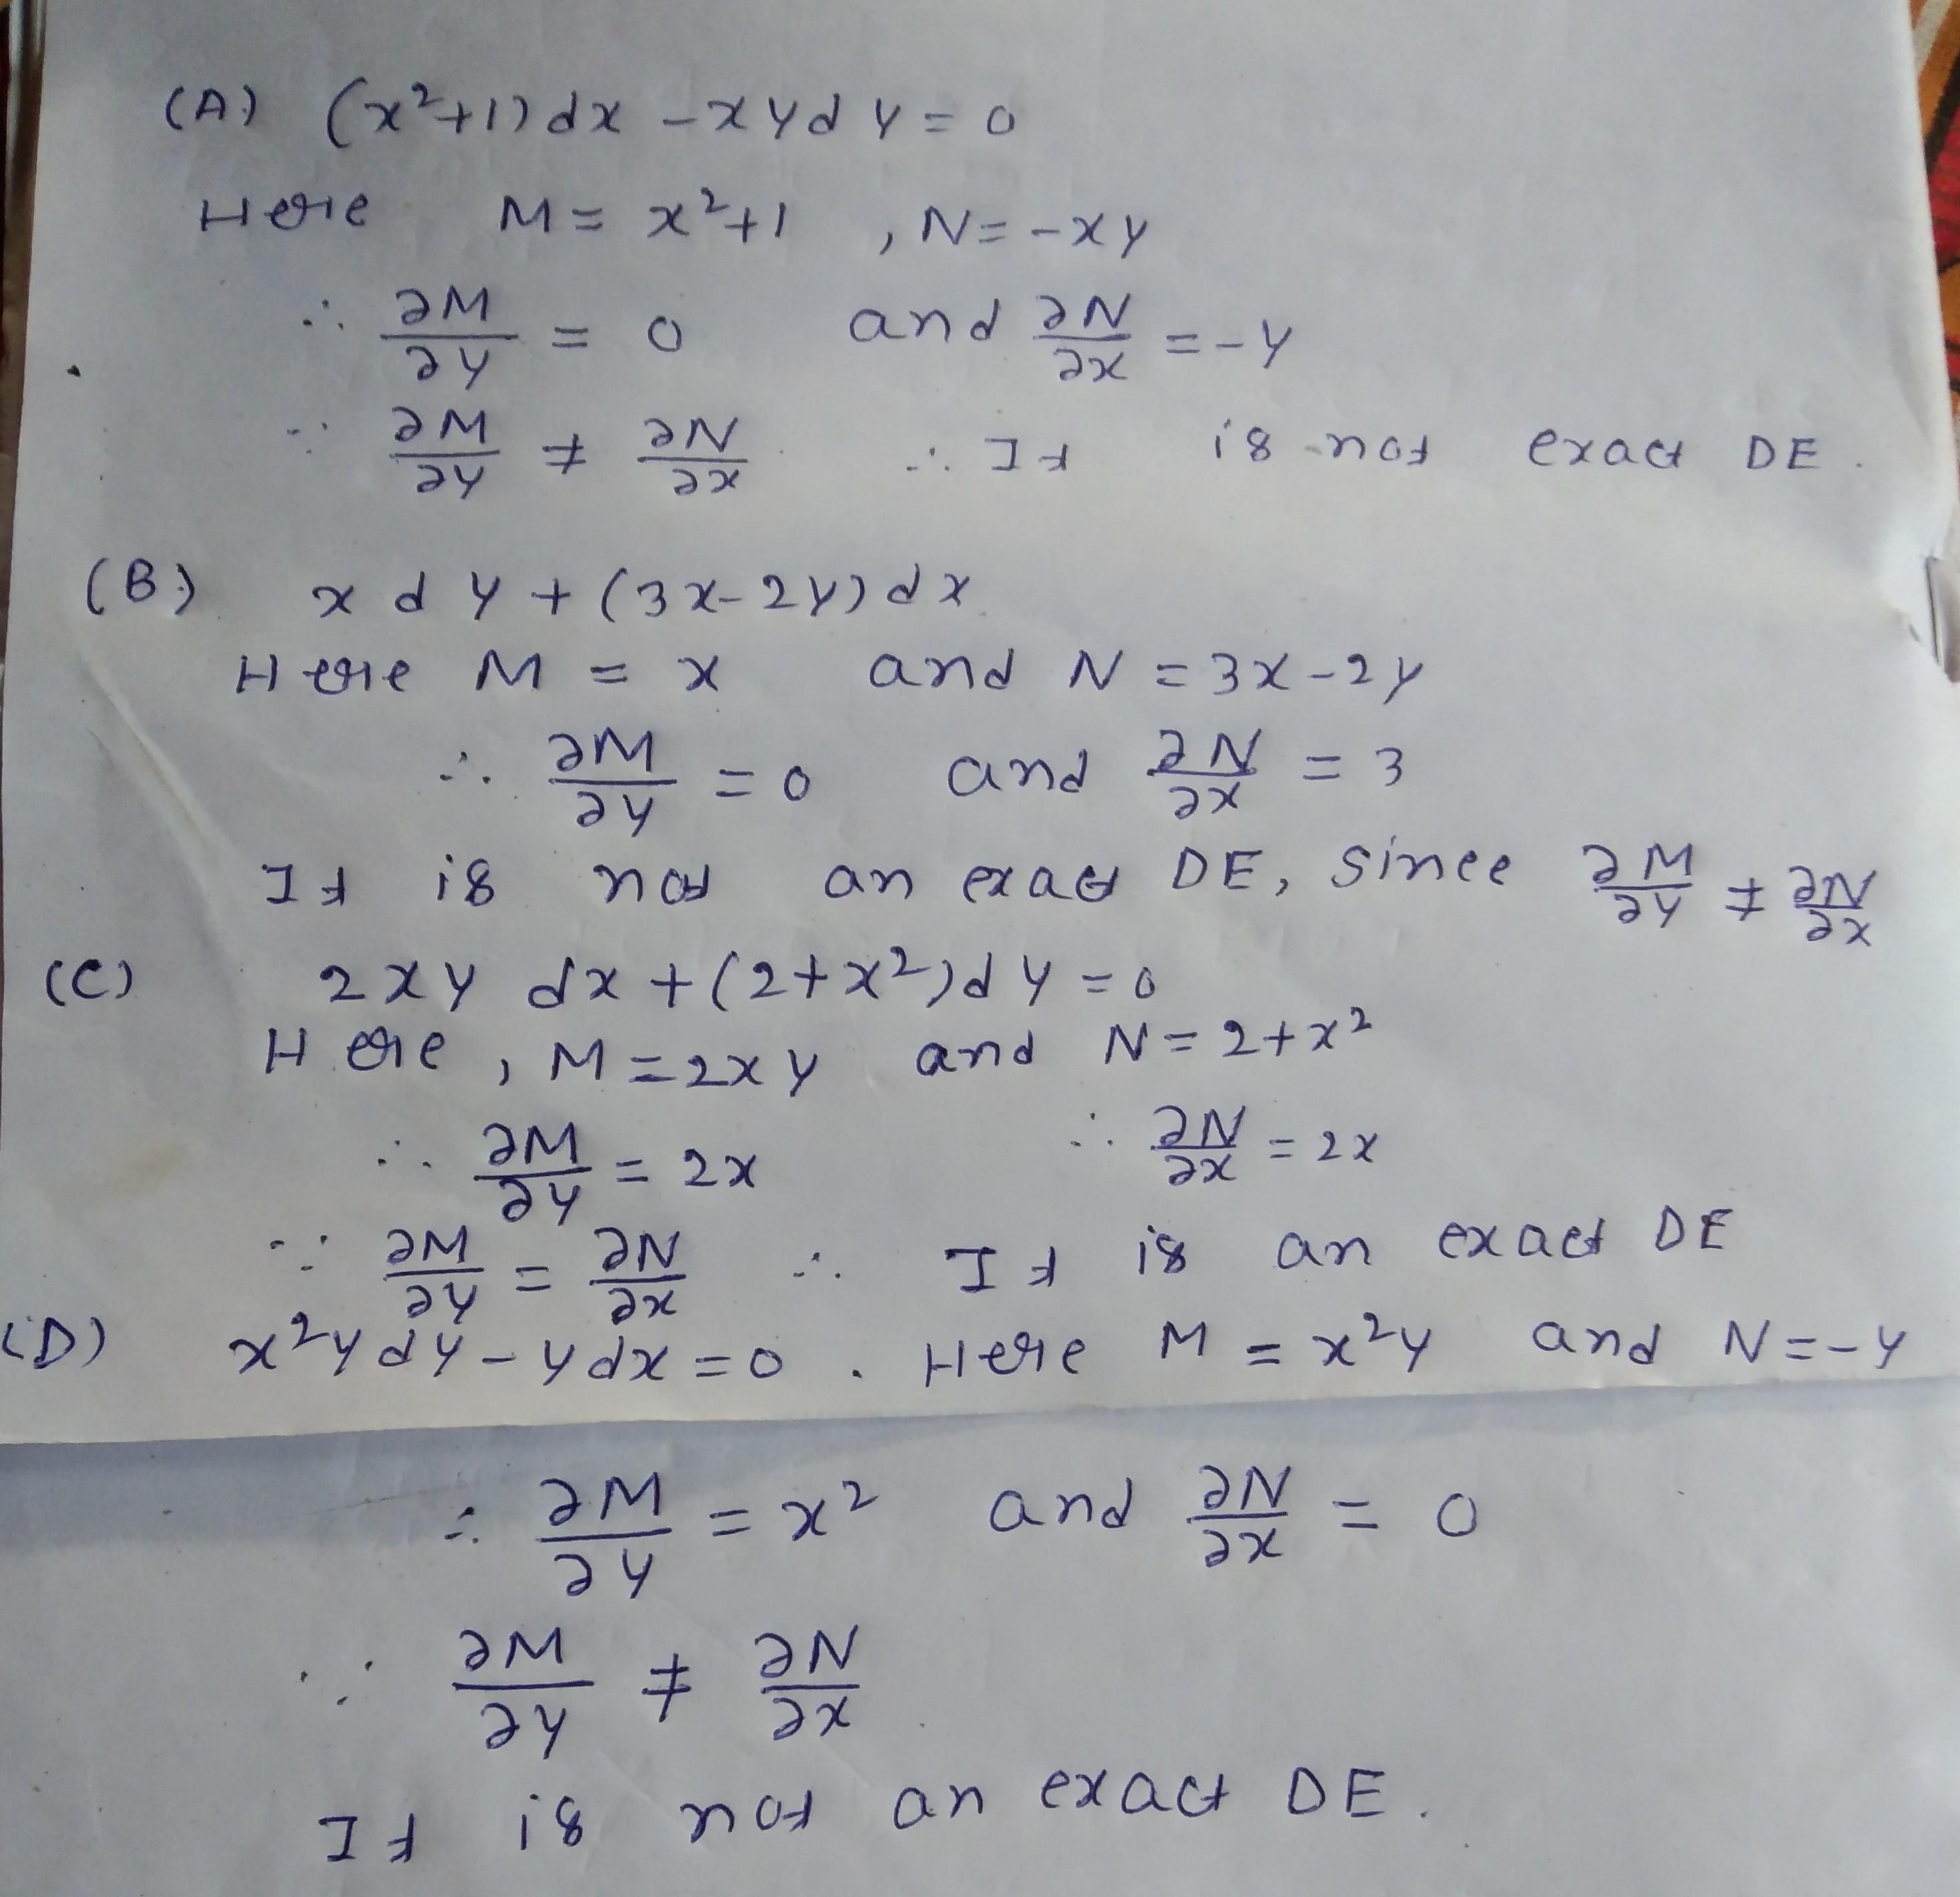 (A) (x²+1)dx - xydy = 0
Here M = x²+1 , N = -xy
∴ ∂M/∂y = 0 and ∂N/∂x = -y
∵ ∂M/∂y ≠ ∂N/∂x ∴ It is not exact DE.
(B) x dy + (3x-2y)dx
Here M = x and N = 3x-2y
∴ ∂M/∂y = 0 and ∂N/∂x = 3
It is not an exact DE, since ∂M/∂y ≠ ∂N/∂x
(C) 2xy dx + (2+x²)dy = 0
Here, M = 2xy and N = 2+x²
∴ ∂M/∂y = 2x ∴ ∂N/∂x = 2x
∵ ∂M/∂y = ∂N/∂x ∴ It is an exact DE
(D) x²ydy - ydx = 0. Here M = x²y and N = -y
∴ ∂M/∂y = x² and ∂N/∂x = 0
∵ ∂M/∂y ≠ ∂N/∂x
It is not an exact DE.